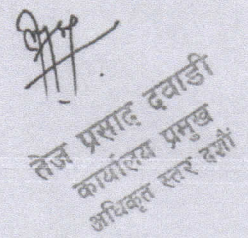 तेज प्रसाद दवाडी
कार्यालय प्रमुख
अधिकृत स्तर दशौं